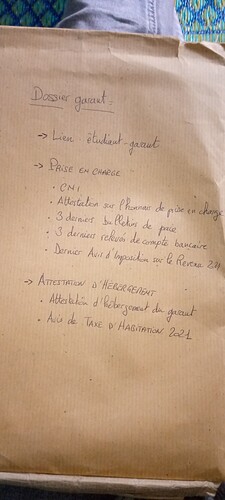 Dossier garant :
→ Lien étudiant-garant
→ PRISE EN CHARGE
• CNI
• Attestation sur l'honneur de prise en charge
• 3 derniers bulletins de paie
• 3 derniers relevés de compte bancaire
• Dernier Avis d'Imposition sur le Revenu
→ ATTESTATION D'HÉBERGEMENT
• Attestation d'hébergement du garant
• Avis de TAXE D'HABITATION 2021